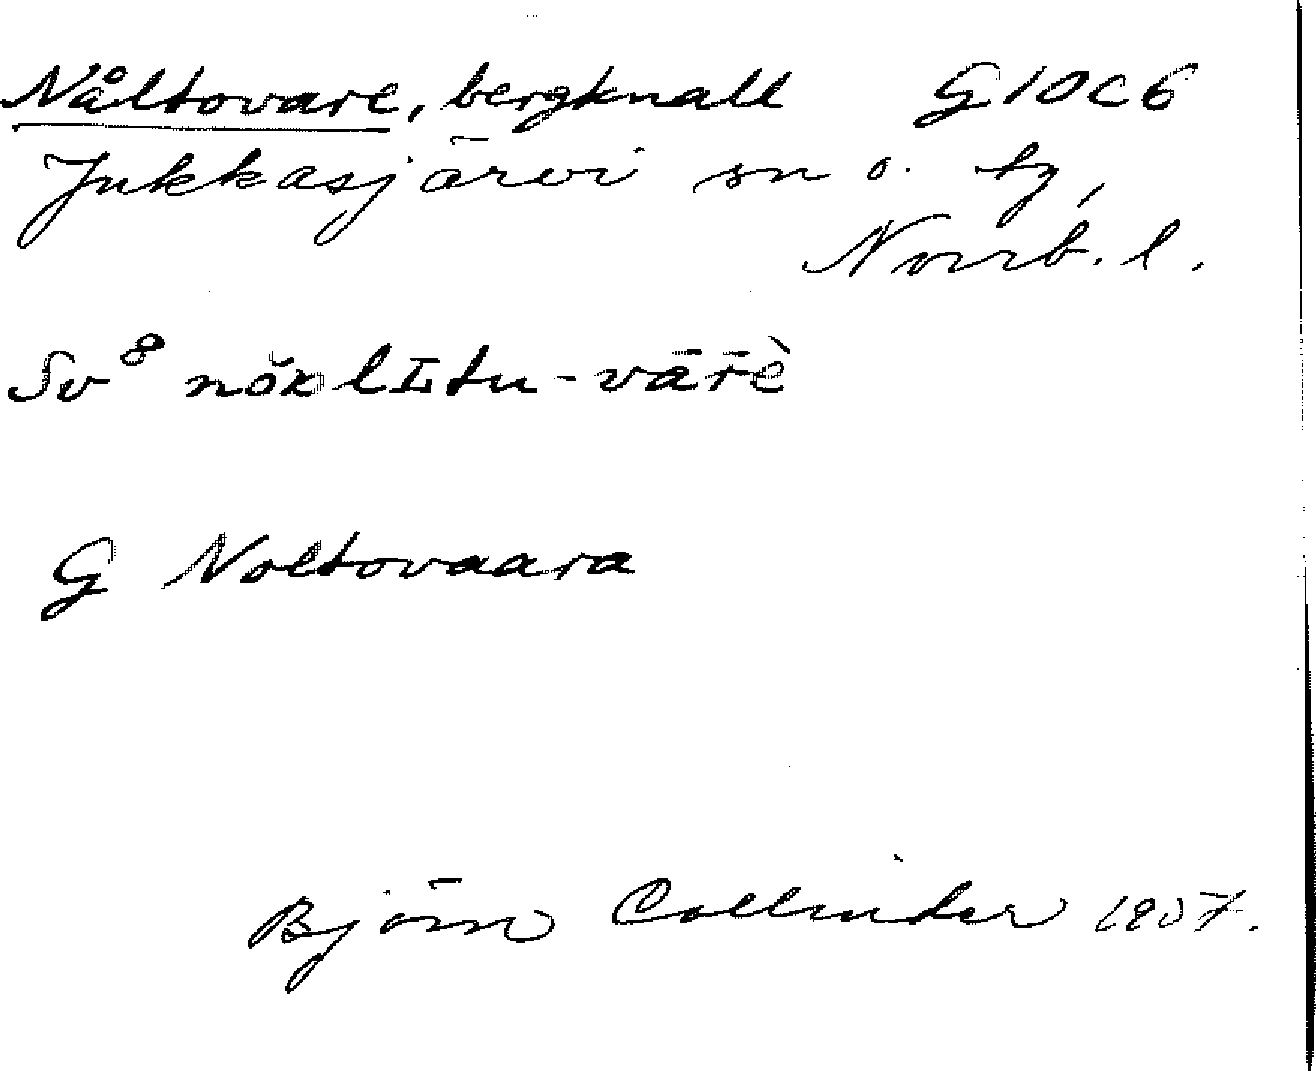 Nåltovare, bergknall G10C6
Jukkasjärvi sn o. tg,
Norrb. l.
Sv
G Noltovaara
Björn Collinder 1957.